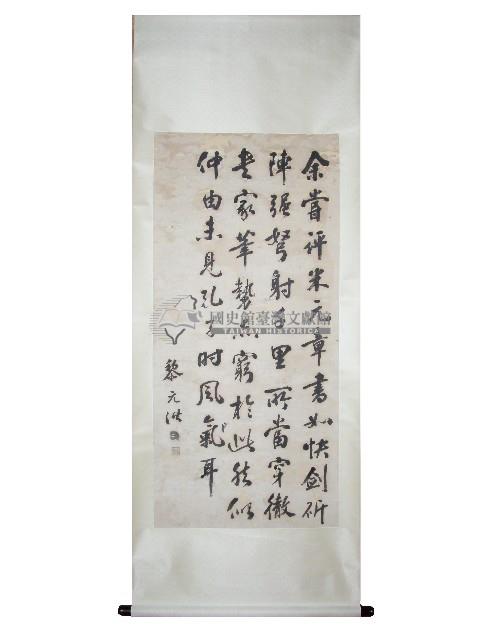 余嘗評米元章書如快劍斫
陣強弩射千里所當穿徹
書家筆勢亦窮於此然似
仲由未見孔子時風氣耳
黎元洪
國史館臺灣文獻館
TAIWAN HISTORICA